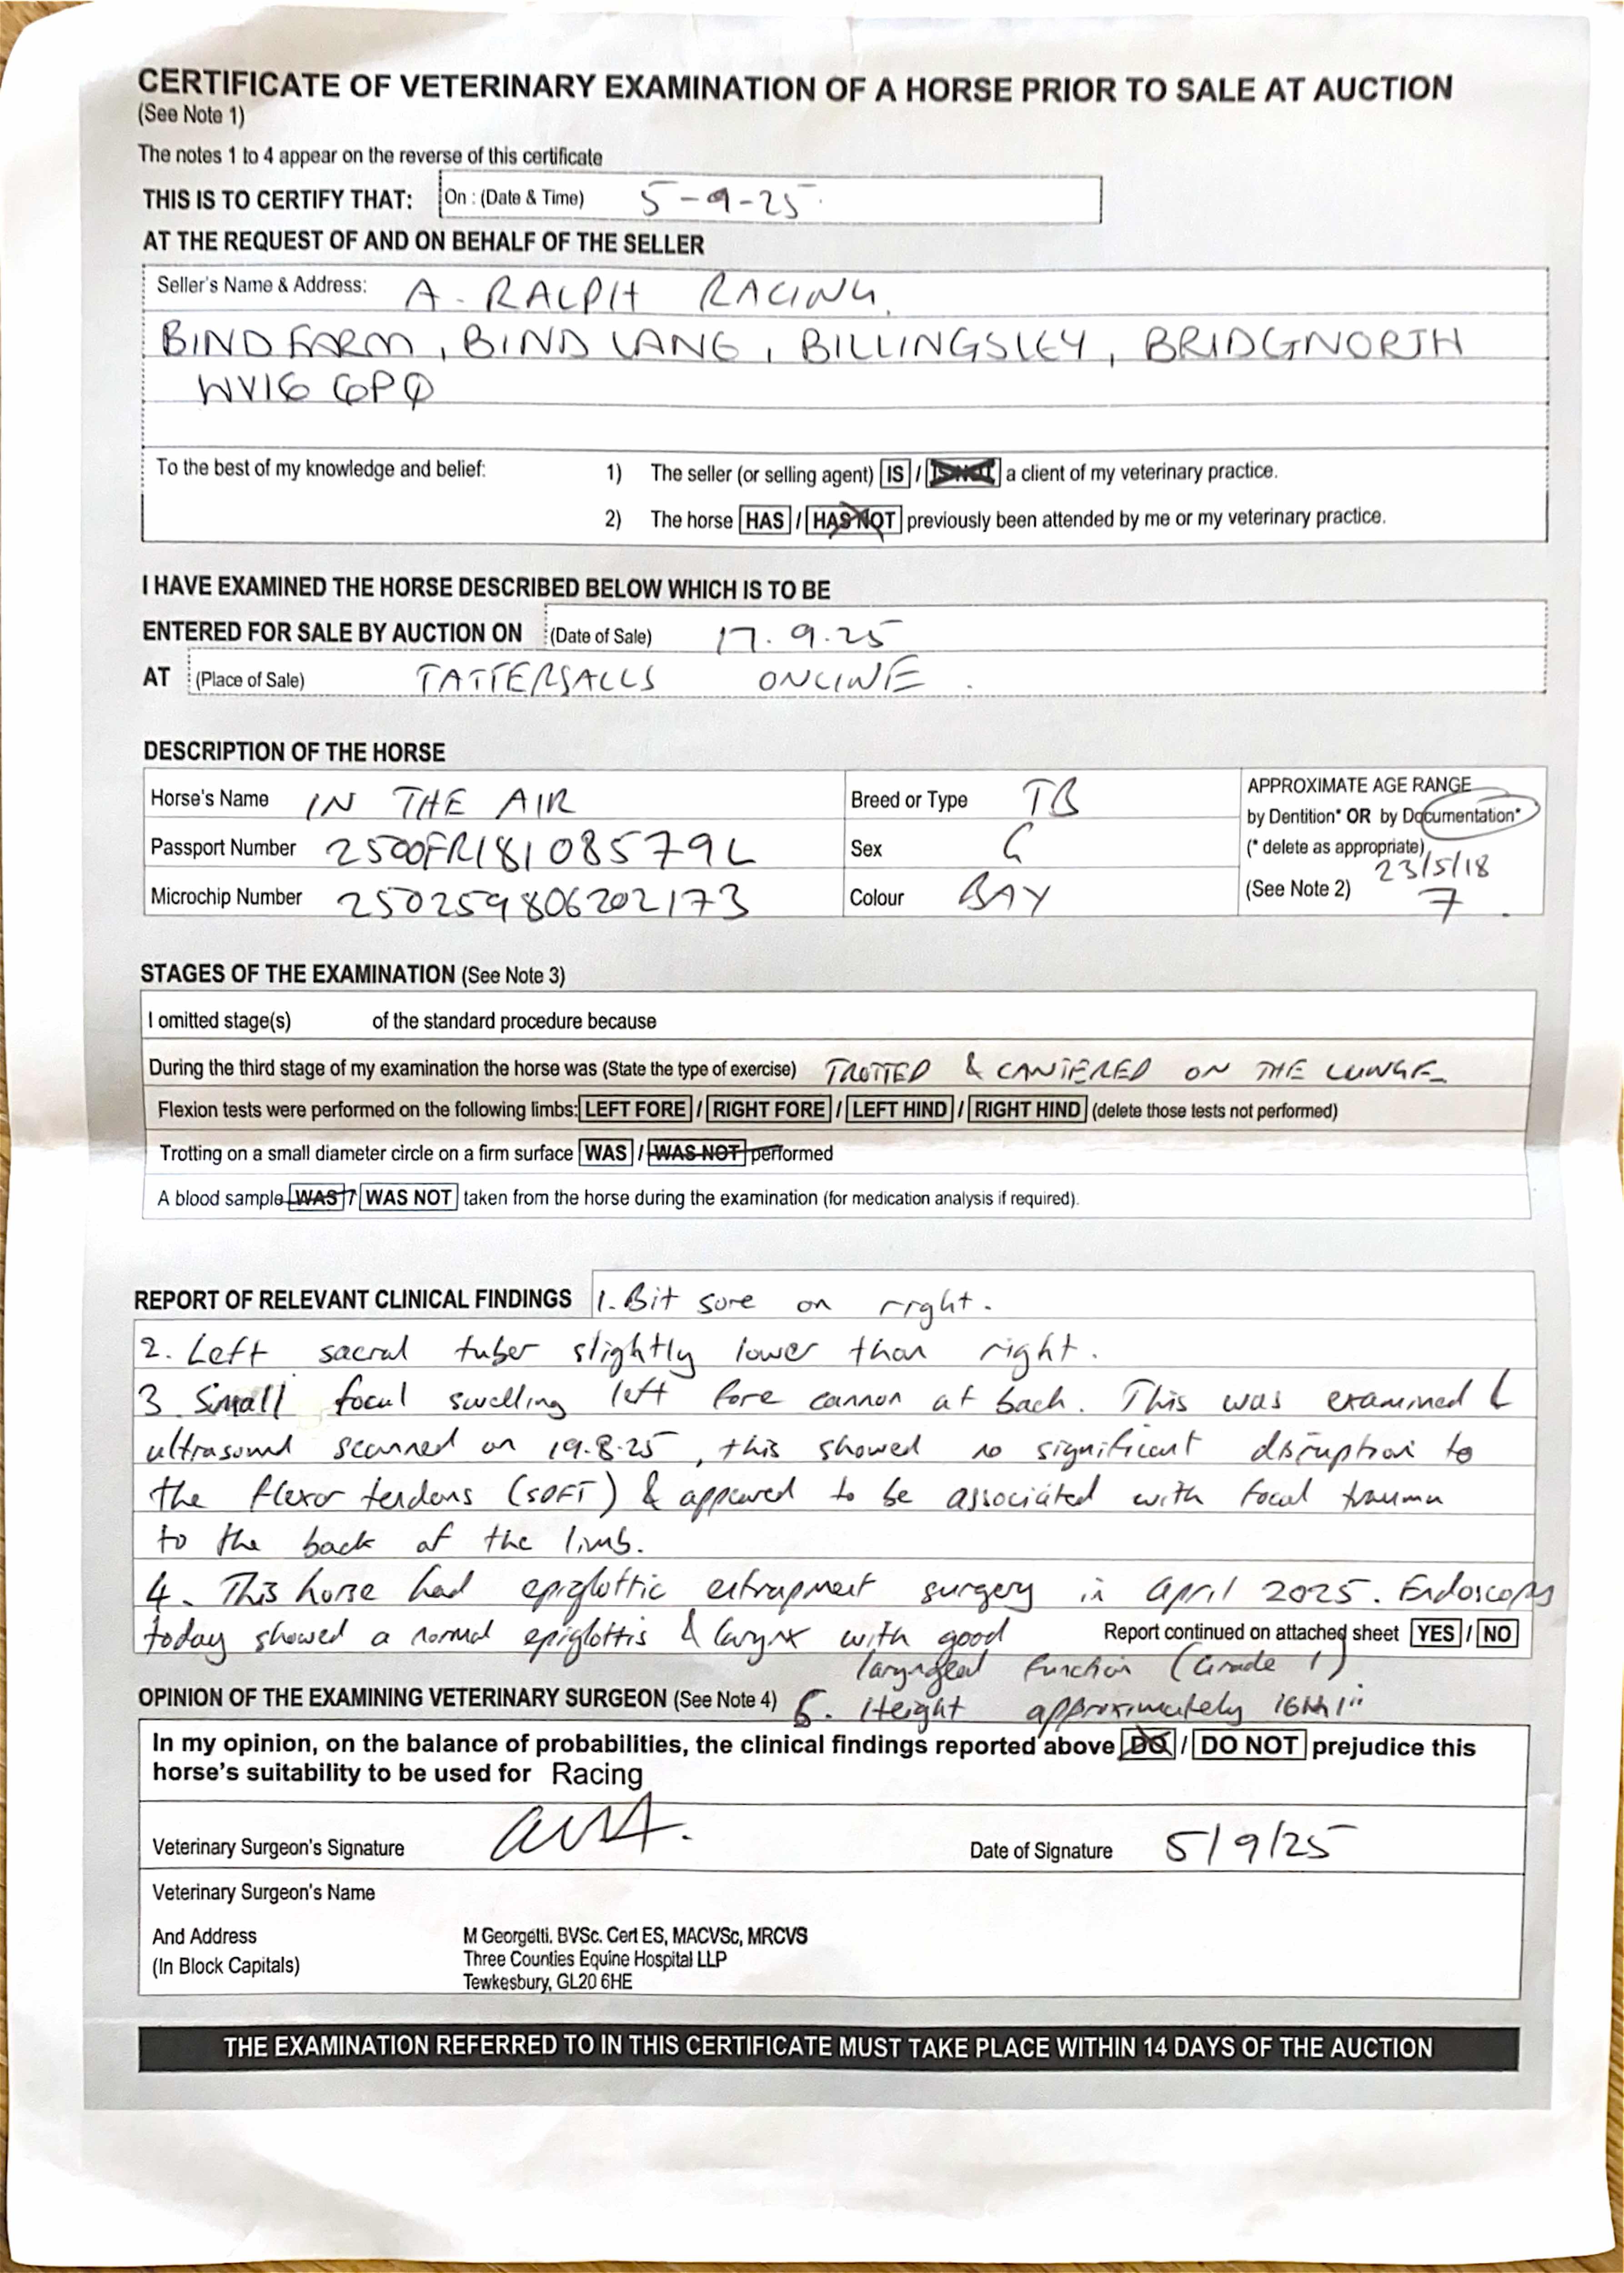 CERTIFICATE OF VETERINARY EXAMINATION OF A HORSE PRIOR TO SALE AT AUCTION
(See Note 1)
The notes 1 to 4 appear on the reverse of this certificate
THIS IS TO CERTIFY THAT: On : (Date & Time) 5-9-25
AT THE REQUEST OF AND ON BEHALF OF THE SELLER
Seller's Name & Address: A. RALPH RACING
BIND FARM, BIND LANE, BILLINGSLEY, BRIDGNORTH
WV16 6PQ
To the best of my knowledge and belief: 1) The seller (or selling agent) IS / IS NOT a client of my veterinary practice.
2) The horse HAS / HAS NOT previously been attended by me or my veterinary practice.
I HAVE EXAMINED THE HORSE DESCRIBED BELOW WHICH IS TO BE
ENTERED FOR SALE BY AUCTION ON (Date of Sale) 17.9.25
AT (Place of Sale) TATTERSALLS ONLINE.
DESCRIPTION OF THE HORSE
Horse's Name IN THE AIR Breed or Type TB APPROXIMATE AGE RANGE
by Dentition* OR by Documentation*
Passport Number 2500FR18108579L Sex G (* delete as appropriate)
23/5/18
Microchip Number 250259806202173 Colour BAY (See Note 2) 7
STAGES OF THE EXAMINATION (See Note 3)
I omitted stage(s) of the standard procedure because
During the third stage of my examination the horse was (State the type of exercise) TROTTED & CANTERED ON THE LUNGE
Flexion tests were performed on the following limbs: LEFT FORE / RIGHT FORE / LEFT HIND / RIGHT HIND (delete those tests not performed)
Trotting on a small diameter circle on a firm surface WAS / WAS NOT performed
A blood sample WAS / WAS NOT taken from the horse during the examination (for medication analysis if required).
REPORT OF RELEVANT CLINICAL FINDINGS 1. Bit sore on right.
2. Left sacral tuber slightly lower than right.
3 Small focal swelling left fore cannon at back. This was examined &
ultrasound scanned on 19.8.25, this showed no significant disruption to
the flexor tendons (SDFT) & appeared to be associated with focal trauma
to the back of the limb.
4. This horse had epiglottic entrapment surgery in april 2025. Endoscopy
today showed a normal epiglottis & larynx with good Report continued on attached sheet YES / NO
laryngeal function (Grade 1)
OPINION OF THE EXAMINING VETERINARY SURGEON (See Note 4) 5. Height approximately 16hh 1"
In my opinion, on the balance of probabilities, the clinical findings reported above DO / DO NOT prejudice this
horse's suitability to be used for Racing
Veterinary Surgeon's Signature Date of Signature 5/9/25
Veterinary Surgeon's Name
And Address M Georgetti. BVSc. Cert ES, MACVSc, MRCVS
(In Block Capitals) Three Counties Equine Hospital LLP
Tewkesbury, GL20 6HE
THE EXAMINATION REFERRED TO IN THIS CERTIFICATE MUST TAKE PLACE WITHIN 14 DAYS OF THE AUCTION